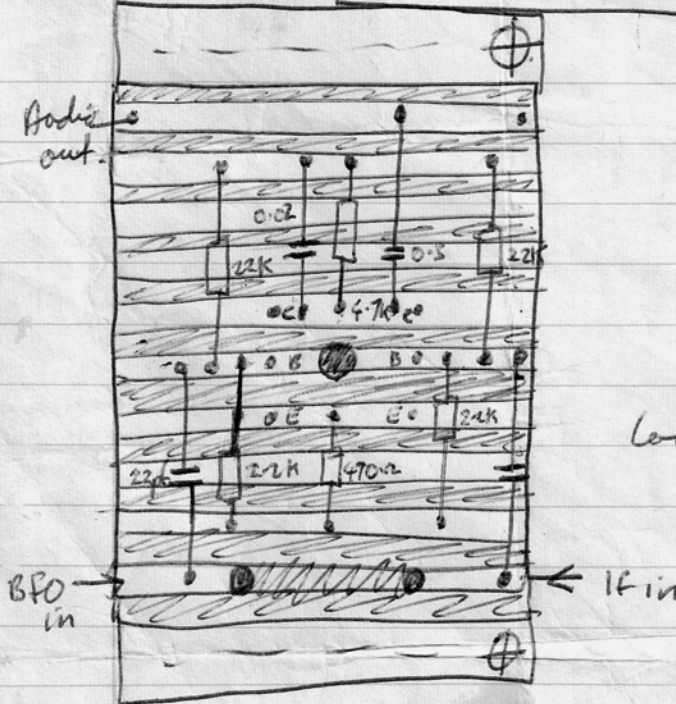 Audio
out.
0.02
22K
0.5
22K
C
4.7K
C
B
B
E
E
2.2K
22pf
2.2K
470Ω
BFO
in
IF in